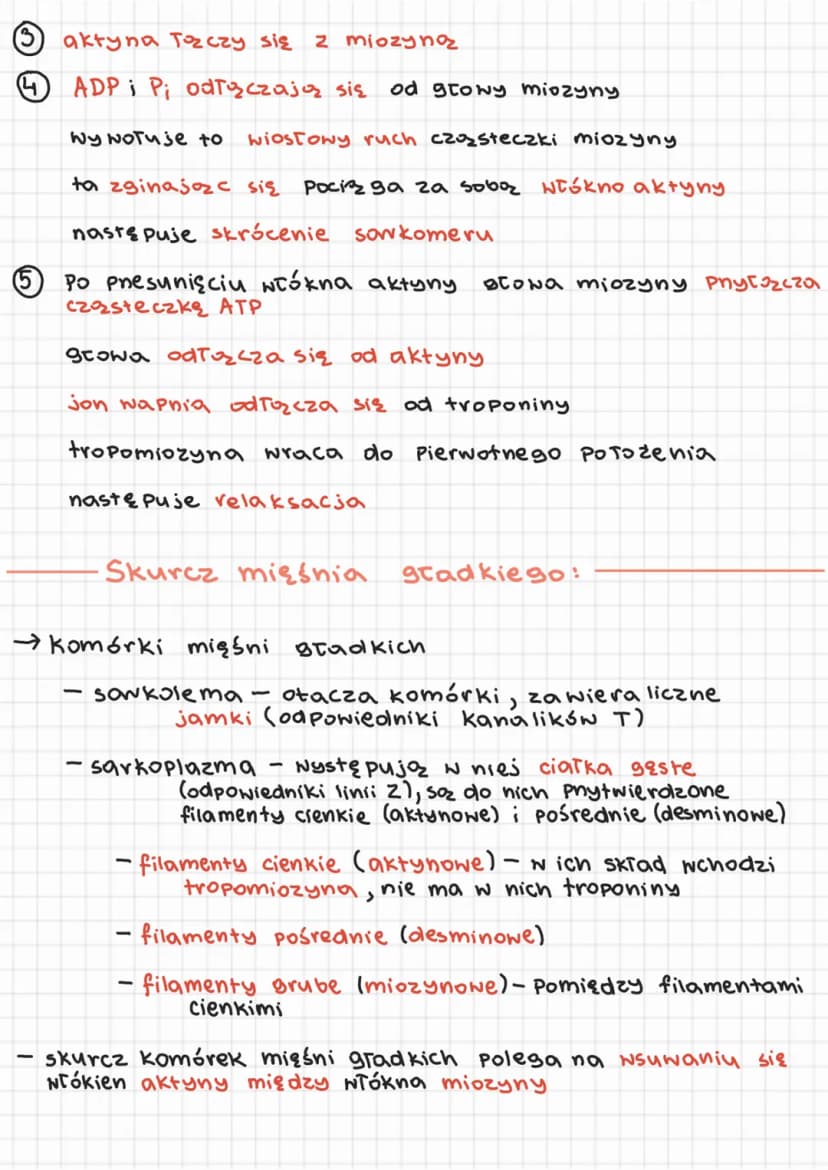 ③ aktyna łączy się z miozyną
④ ADP i Pi odłączają się od głowy miozyny
wywołuje to wiosłowy ruch cząsteczki miozyny
ta zginając się pociąga za sobą włókno aktyny
następuje skrócenie sarkomeru
⑤ Po przesunięciu włókna aktyny głowa miozyny przyłącza
cząsteczkę ATP
głowa odłącza się od aktyny
jon wapnia odłącza się od troponiny
tropomiozyna wraca do pierwotnego położenia
następuje relaksacja
Skurcz mięśnia gładkiego:
→ komórki mięśni gładkich
- sarkolema - otacza komórki, zawiera liczne
jamki (odpowiedniki kanalików T)
- sarkoplazma - występują w niej ciałka gęste
(odpowiedniki linii Z), są do nich przytwierdzone
filamenty cienkie (aktynowe) i pośrednie (desminowe)
- filamenty cienkie (aktynowe) - w ich skład wchodzi
tropomiozyna, nie ma w nich troponiny
- filamenty pośrednie (desminowe)
- filamenty grube (miozynowe) - pomiędzy filamentami
cienkimi
- skurcz komórek mięśni gładkich polega na wsuwaniu się
włókien aktyny między włókna miozyny